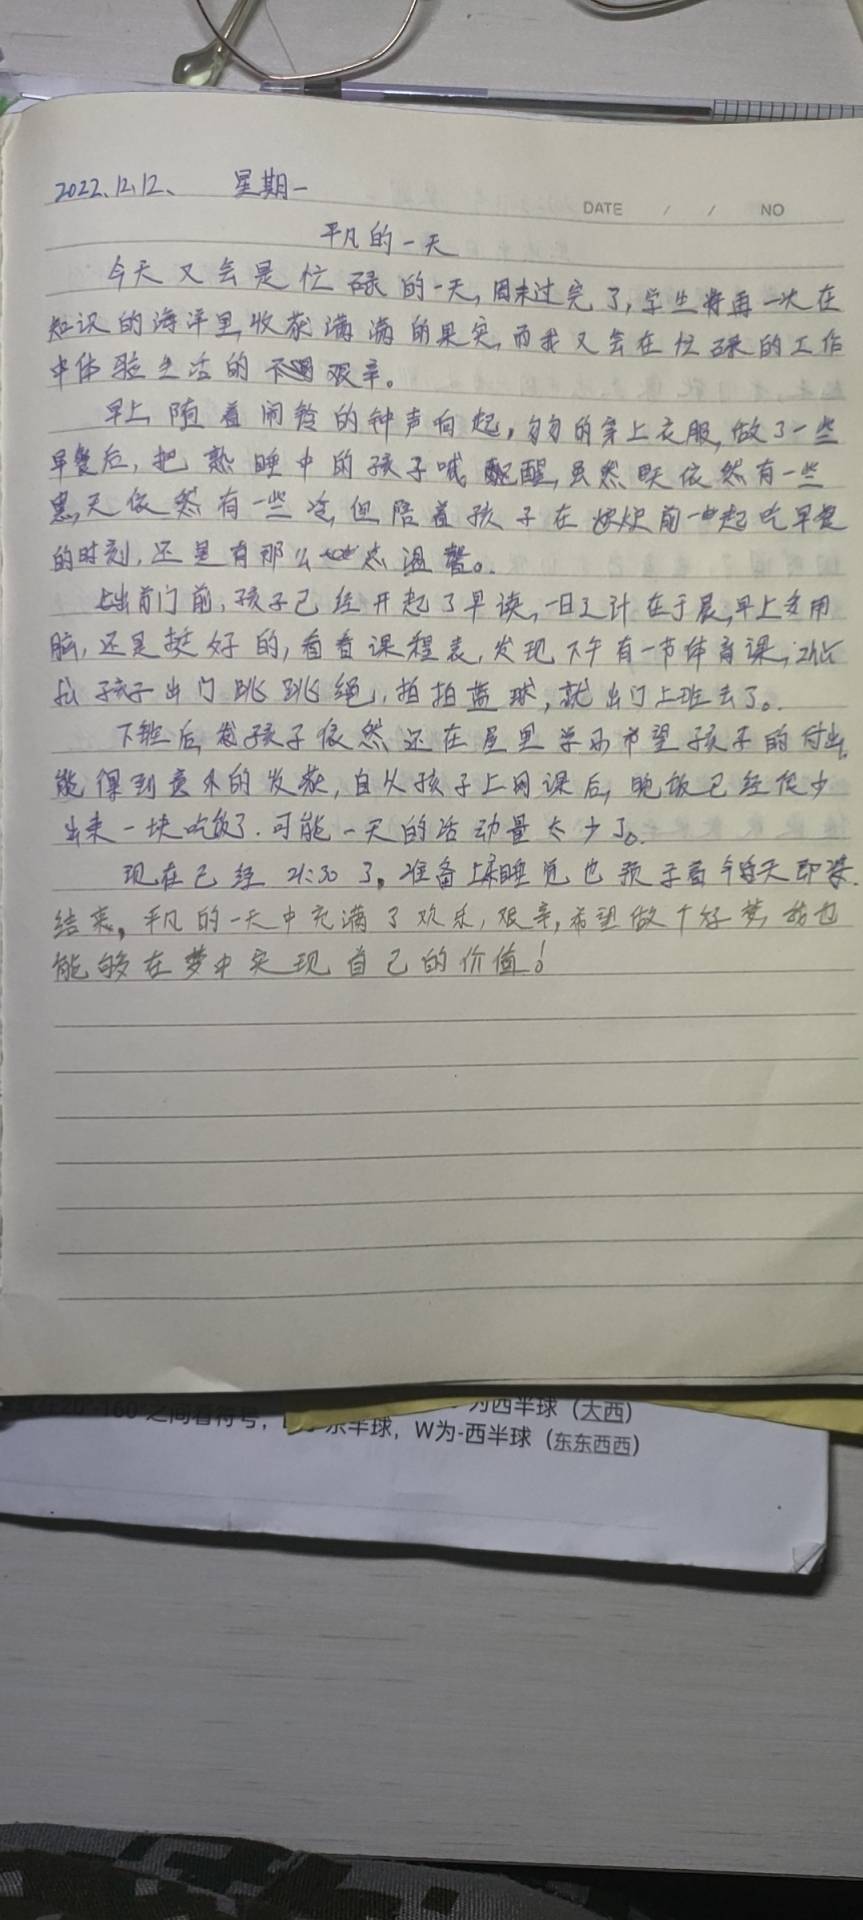 2022.12.12、 星期一
DATE / / NO
平凡的一天
今天又会是忙碌的一天,周末过完了,学生将再一次在
知识的海洋里,收获满满的果实,而我又会在忙碌的工作
中体验生活的艰辛。
早上,随着闹铃的钟声向起,匆匆的穿上衣服,做了一些
早餐后,把熟睡中的孩子喊醒,虽然依然有一些
天依然有一些冷,但陪着孩子在前一起吃早餐
的时刻,还是有那么点温馨。
出门前,孩子已经开起了早读,一日之计在于晨,早上多用
脑,还是挺好的,看看课程表,发现下午有一节体育课,
孩子出门跳跳绳,拍拍蓝球,就出门上班去了。
下班后,孩子依然还在屋里学习希望孩子的付出,
能得到意外的收获,自从孩子上网课后,晚饭已经很少
出来一块吃饭了.可能一天的活动量太少了。
现在已经21:30了。准备上床睡觉也预示着今天即将
结束,平凡的一天中充满了欢乐,艰辛,希望做个好梦,我也
能够在梦中实现自己的价值!
之间看符号,
为西半球(大西)
东半球,W为-西半球(东东西西)